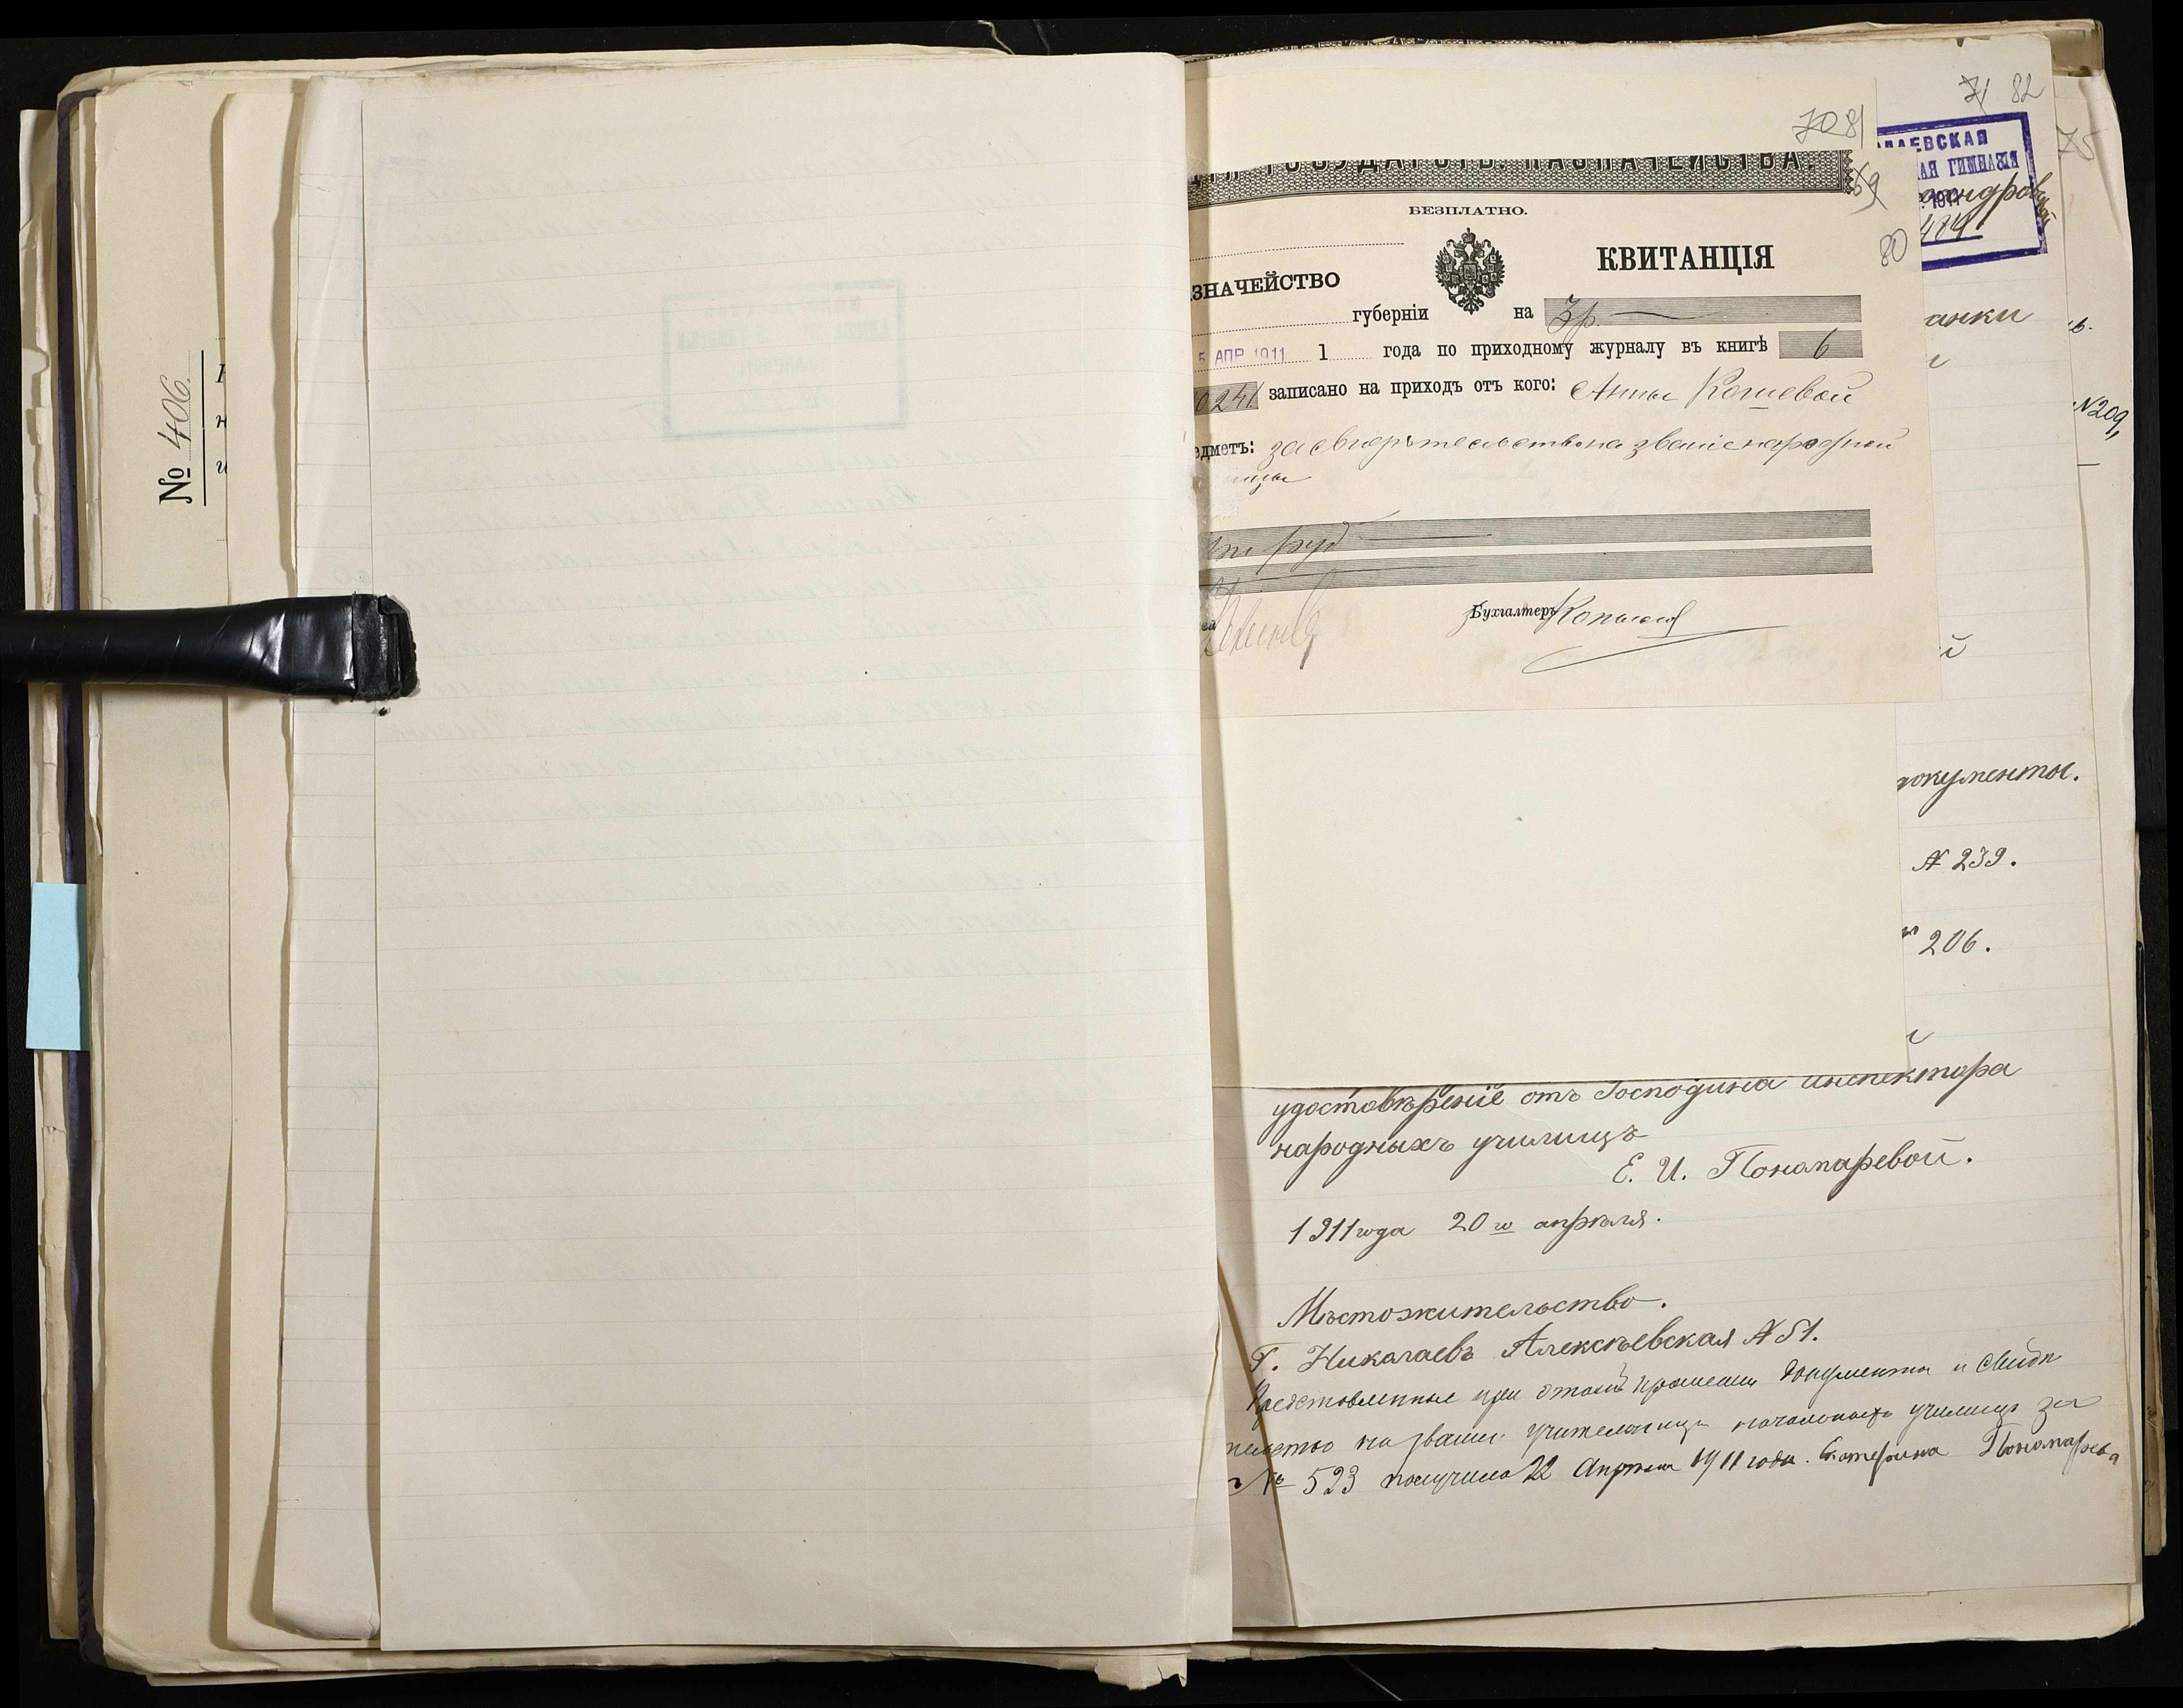 № 406.
70 81
71 82
75
59
80
ЛАЕВСКАЯ
АЯ ГИМНАЗІЯ
1911
484
БЕЗПЛАТНО.
КВИТАНЦІЯ
ЗНАЧЕЙСТВО
губерніи на 3 р.
5 АПР. 1911 1 года по приходному журналу въ книгѣ 6
0241 записано на приходъ отъ кого: Анны Кошевой
едметъ: за свидѣтельство на званіе народной
ницы
три руб
Бухгалтеръ
анки
№ 209,
документы.
№ 239.
206.
удостовѣреніе отъ Господина инспектора
народныхъ училищъ
Е. И. Пономаревой.
1911 года 20 го апрѣля.
Мѣстожительство.
Г. Николаевъ Алексѣевская № 51.
Представленные при этомъ прошеніи документы и свидѣ
тельство на званіе учительницы начальныхъ училищъ за
№ 523 получила 22 Апрѣля 1911 года. Екатерина Пономарева